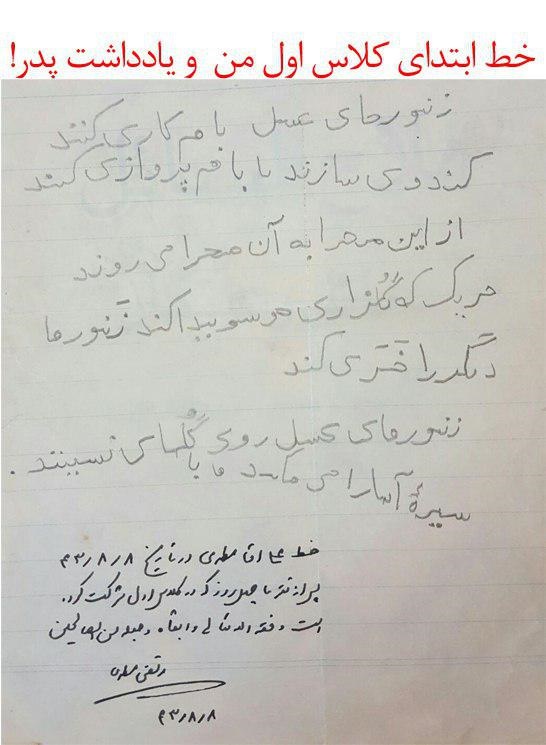 خط ابتدای کلاس اول من و یادداشت پدر!
زنبورهای عسل با هم کار می کنند
کندو می سازند با با هم پرواز می کنند
از این صحرا به آن صحرا می روند
هر یک که گلزاری خوسو پیدا کند زنبورها
دیگر را خبر می کند
زنبورهای عسل روی گلهای نسینند .
سیرهٔ آنها را می مکند و با
خط علی آقا مطهری در تاریخ ۴۳/۸/۸
پس از تقریبا چهل روز که در کلاس اول شرکت کرد.
است وفقه الله تعالی و ابقاه و جعله من الصالحین
مرتضی مطهری
۴۳/۸/۸